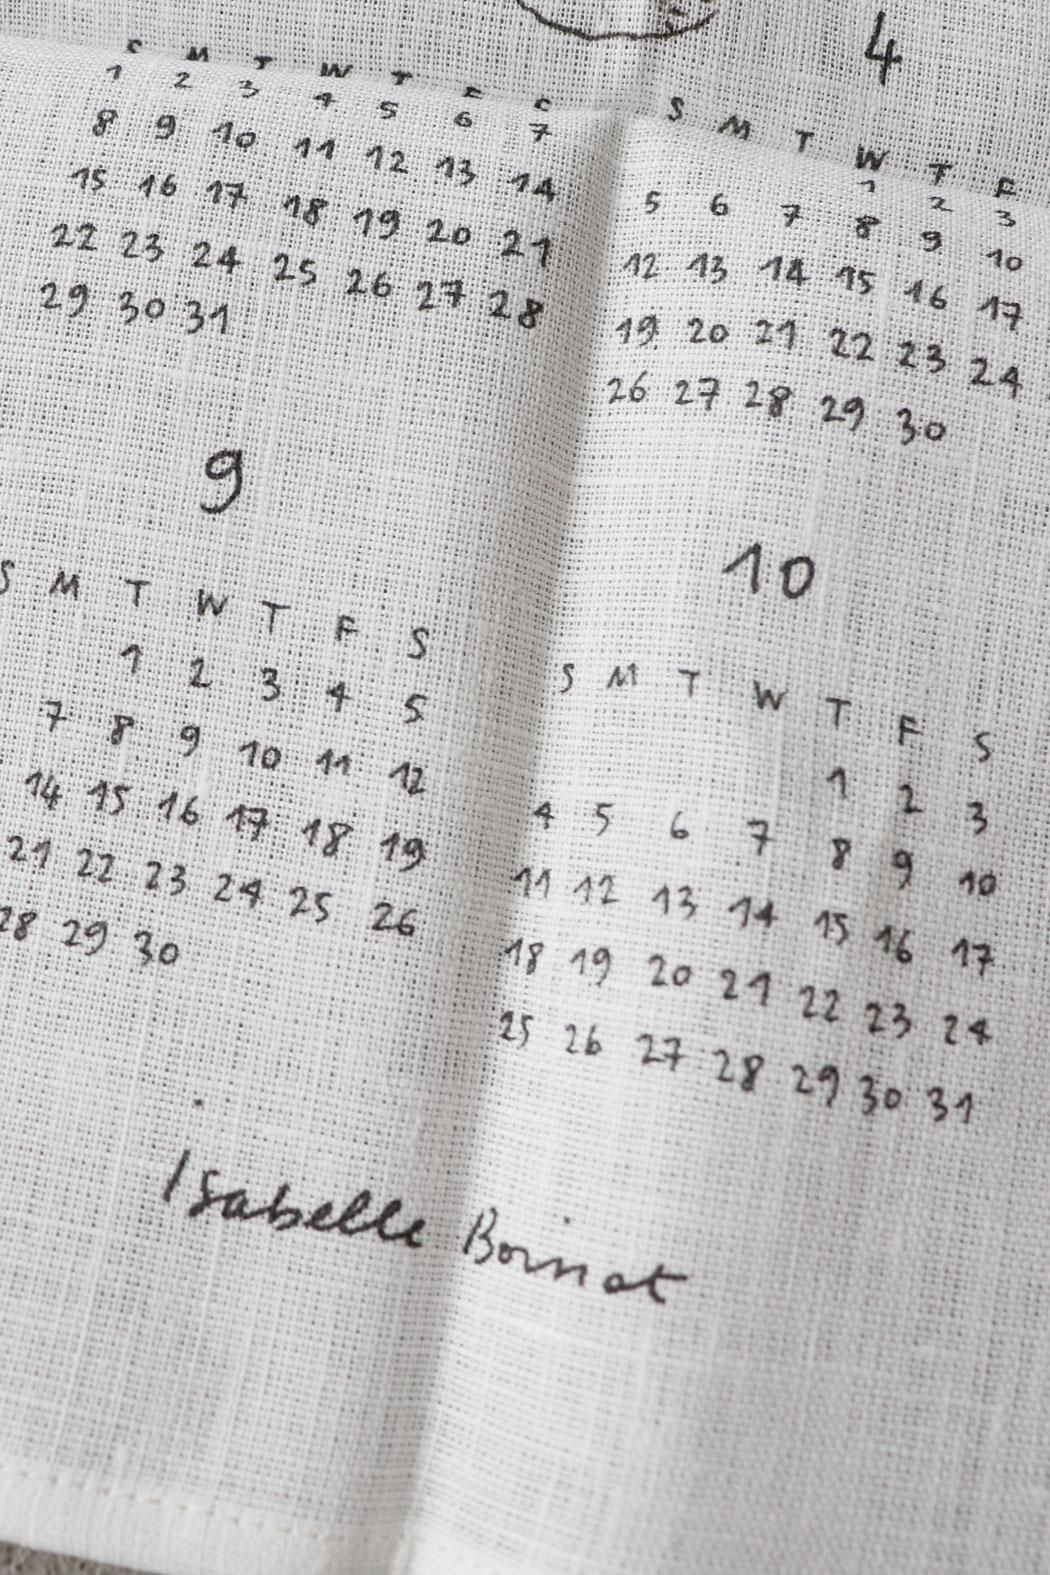 S M T W T F S
1 2 3 4 5 6 7
8 9 10 11 12 13 14
15 16 17 18 19 20 21
22 23 24 25 26 27 28
29 30 31
4
S M T W T F
1 2 3
5 6 7 8 9 10
12 13 14 15 16 17
19 20 21 22 23 24
26 27 28 29 30
9
S M T W T F S
1 2 3 4 5
7 8 9 10 11 12
14 15 16 17 18 19
21 22 23 24 25 26
28 29 30
10
S M T W T F S
1 2 3
4 5 6 7 8 9 10
11 12 13 14 15 16 17
18 19 20 21 22 23 24
25 26 27 28 29 30 31
Isabelle Boinot